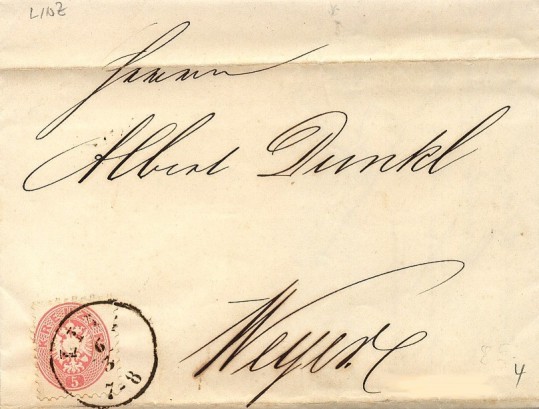 LINZ
Herrn
Albert Dunkl
Weyer.
5
6
3
7-8
4